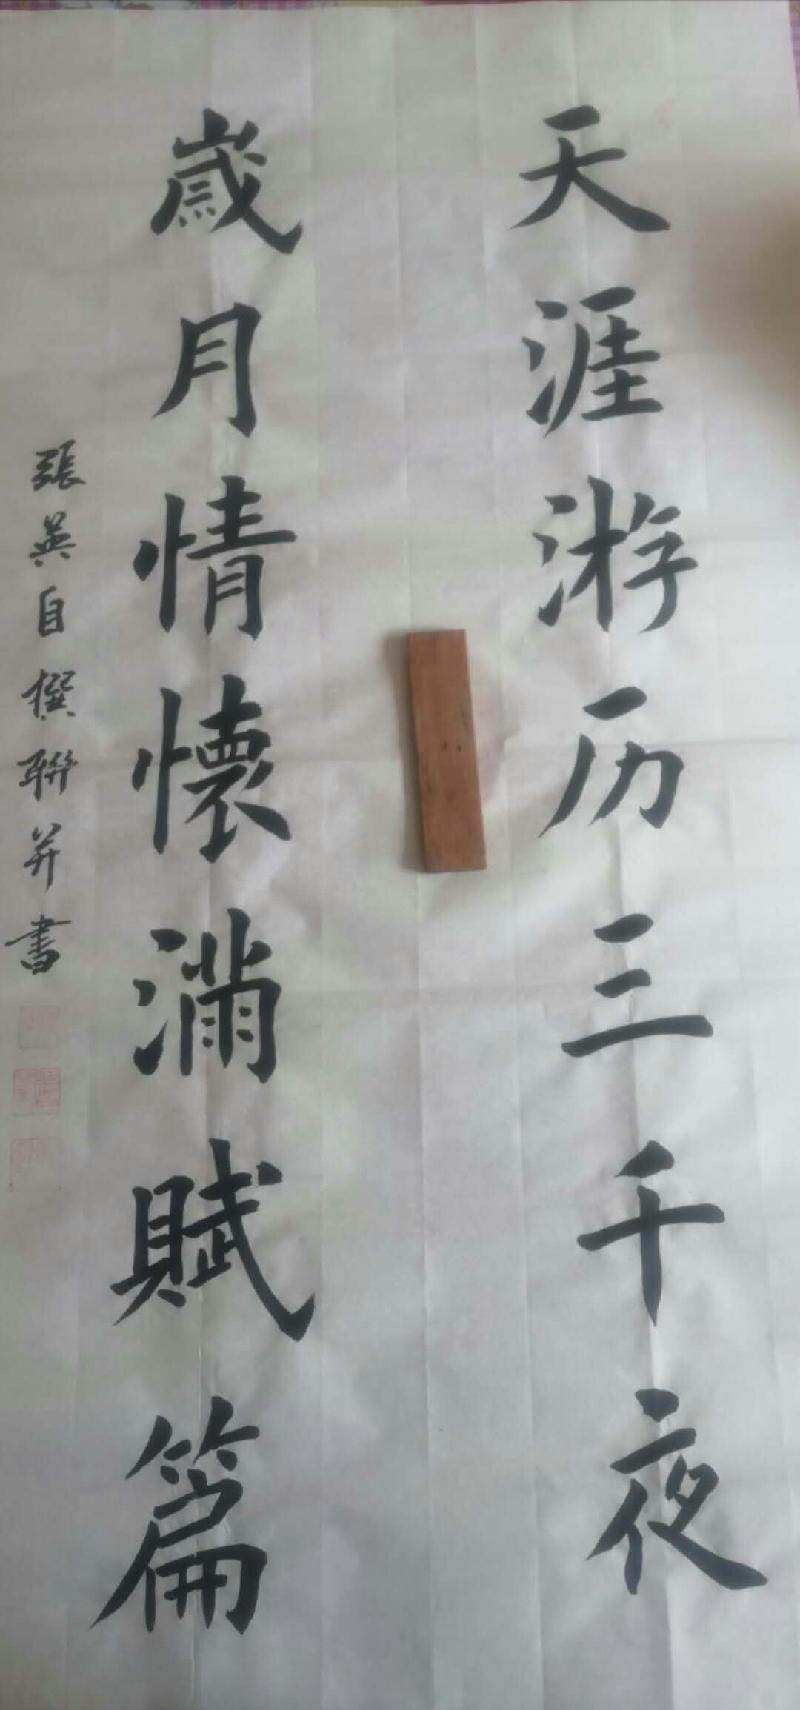 天涯游历三千夜
歲月情懷滿賦篇
張英自撰聯并書